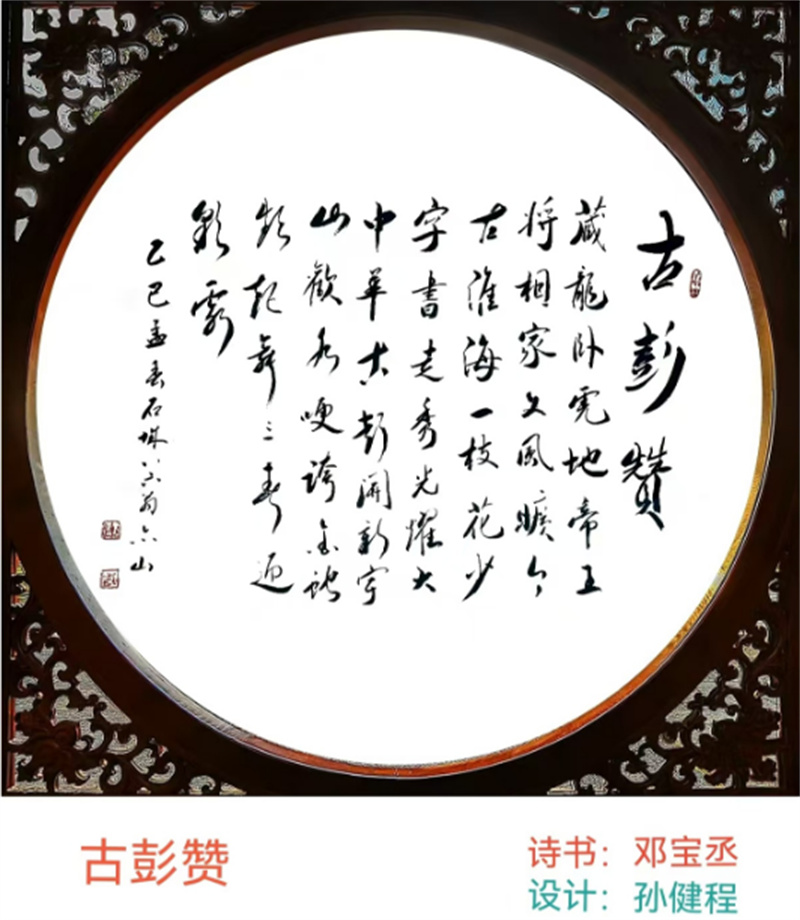 古彭贊
藏龍卧虎地帝王
将相家文风曠今
古淮海一枝花少
字書走秀光耀大
中華古彭開新宇
山歡水誇金蛇
起舞三春迎
霞
乙巳孟春石城翁山
古彭赞
诗书：邓宝丞
设计：孙健程